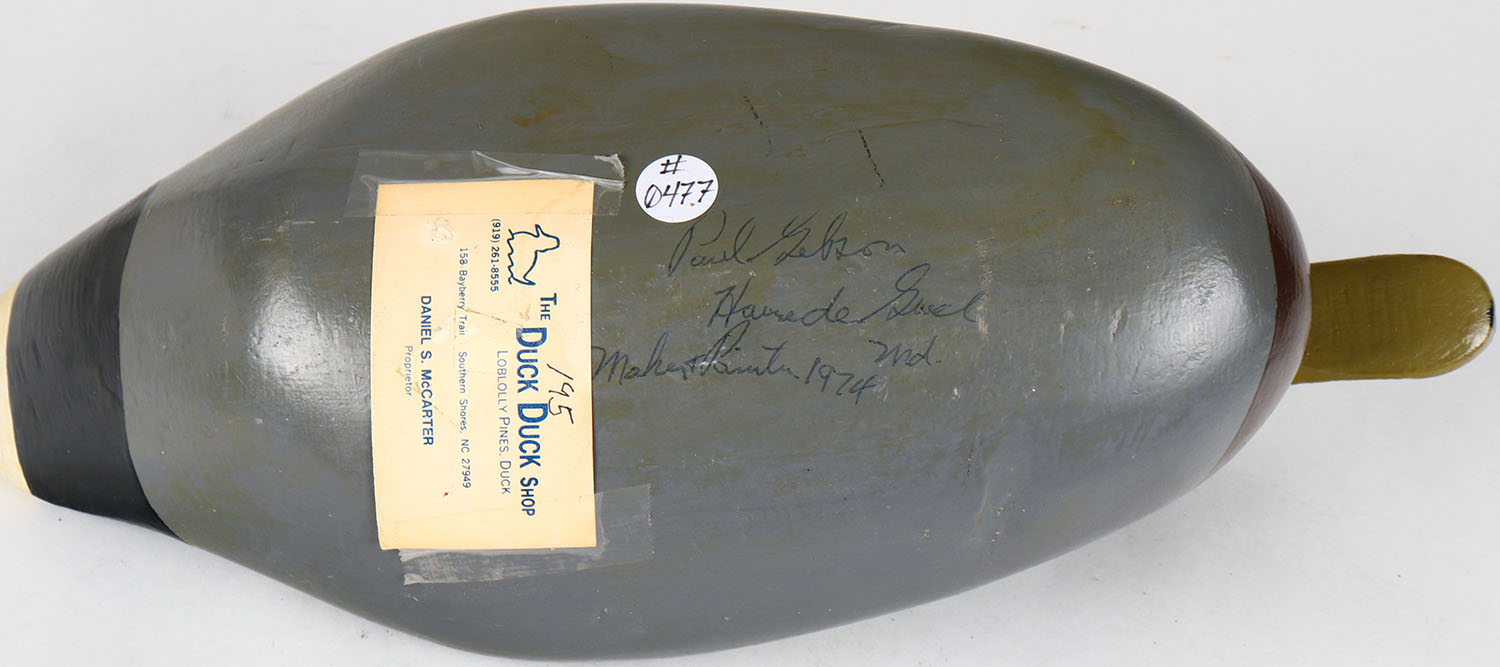 #
0477
Paul Gibson
Havre de Grace
Md.
Maker & Painter 1974
THE DUCK DUCK SHOP
LOBLOLLY PINES, DUCK
195
(919) 261-8555
158 Bayberry Trail Southern Shores, NC 27949
DANIEL S. McCARTER
Proprietor